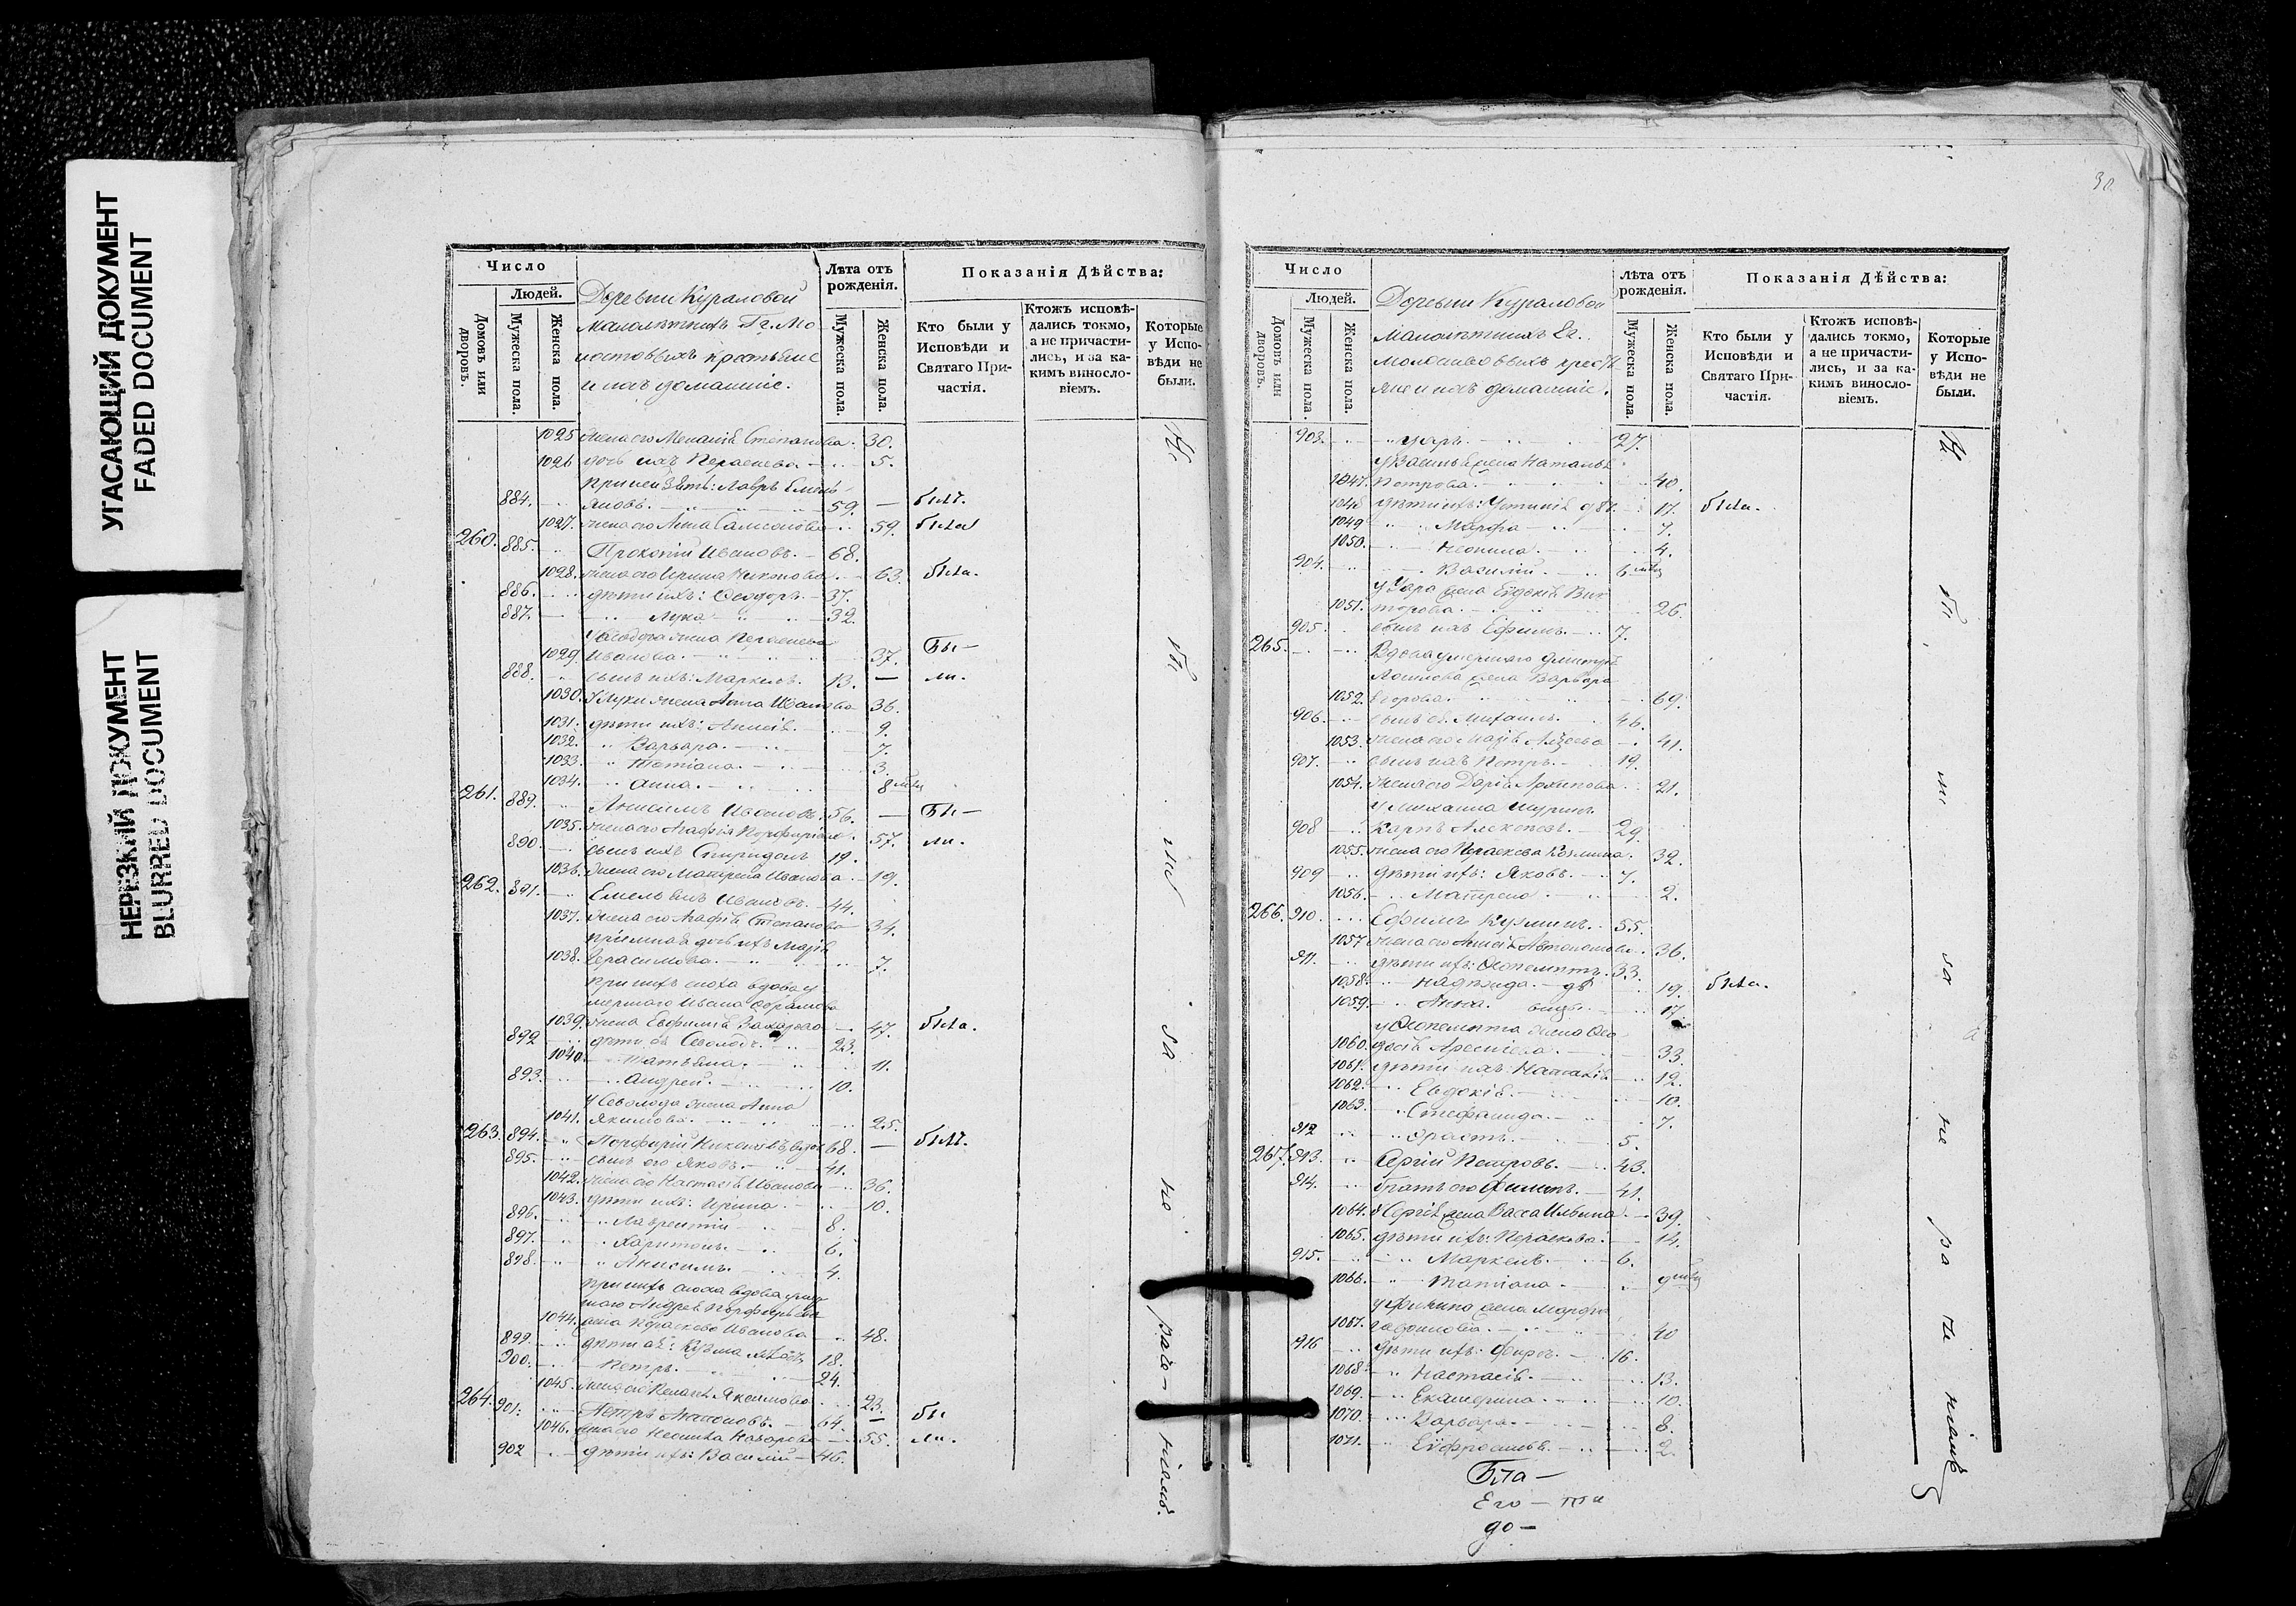 УГАСАЮЩИЙ ДОКУМЕНТ
FADED DOCUMENT
НЕРЕЗКИЙ ДОКУМЕНТ
BLURRED DOCUMENT
Число
Людей.
Домовъ или дворовъ.
Мужеска пола.
Женска пола.
Деревни Кураловой
малолѣтнихъ Гг. Мо
лостовыхъ крестьяне
и ихъ домашніе.
Лѣта отъ рожденія.
Мужеска пола.
Женска пола.
Показанія Дѣйства:
Кто были у Исповѣди и Святаго Причастія.
Ктожъ исповѣдались токмо, а не причастились, и за какимъ винословіемъ.
Которые у Исповѣди не были.
1025 жена его Меланія Степанова. 30.
1026 дочь ихъ Параскева 5.
При немъ зять: Лавръ Емель
884. яновъ. 59. былъ.
1027. жена его Анна Самсонова 59. была
260. 885. Прокопій Ивановъ. 68.
1028. жена его Ирина Никонова 63. была.
886. дѣти ихъ: Ѳеодоръ 37.
887. Лука 32.
у Ѳеодора жена Параскева
1029. Иванова. 37. Бы-
888. сынъ ихъ: Маркелъ. 13. ли.
1030. У Луки жена Анна Иванова 36.
1031. дѣти ихъ: Анисія 9.
1032. Варвара. 7.
1033. Татіана. 3.
1034. Анна. 8 мѣс
261. 889. Анисимъ Ивановъ. 56. Бы-
1035. жена его Агафія Порфирьева. 57. ли.
890. сынъ ихъ Спиридонъ 19.
1036. Жена его Матрена Иванова 19.
262. 891. Емельянъ Ивановъ. 44.
1037. Жена его Агафія Степанова 34.
пріемная дочь ихъ Марія
1038. Герасимова. 7.
При нихъ сноха вдова у
мершаго Ивана Абрамова
1039. жена Евфимія Захарова 47. была.
892 дѣти ея Севолодъ. 23.
1040. Татьяна. 11.
893. Андрей. 10.
У Севолода жена Анна
1041. Якимова. 25.
263. 894. Порфирій Никоновъ, вдов 68. былъ.
895. сынъ его Яковъ. 41.
1042. жена его Настасія Иванова 36.
1043. дѣти ихъ: Ирина. 10.
896. Лаврентій 8.
897. Харитонъ. 6.
898. Анисимъ. 4.
При нихъ сноха вдова умер
шаго Андрея Порфирьева
1044. жена Параскева Иванова 48.
899. дѣти ея: Кузьма 18.
900. Петръ. 24.
1045. жена его Якимова 23.
264. 901. Петръ 64. бы
1046. жена его Назарова 55. ли.
902 дѣти ихъ: Василій 46.
Не бы ли за не раче- ніемъ.
30
Число
Людей.
Домовъ или дворовъ.
Мужеска пола.
Женска пола.
Деревни Кураловой
Малолѣтнихъ Гг.
Молостовыхъ кресть
яне и ихъ домашніе.
Лѣта отъ рожденія.
Мужеска пола.
Женска пола.
Показанія Дѣйства:
Кто были у Исповѣди и Святаго Причастія.
Ктожъ исповѣдались токмо, а не причастились, и за какимъ винословіемъ.
Которые у Исповѣди не были.
903. Уаръ. 27.
У Василья жена Наталья
1047. Петрова. 40.
1048 дѣти ихъ: Устинія 17. была.
1049 Марфа 7.
1050. Неонила. 4.
904. Василій. 6 мѣс
у Уара жена Евдокія Вик
1051. торова. 26.
905. сынъ ихъ Ефимъ. 7.
265. Вдова умершаго Дмитрія
жена Варвара
1052. Егорова. 69.
906. сынъ ея Михаилъ. 46.
1053. жена его Марія 41.
907. сынъ ихъ Петръ. 19.
1054. Жена его Дарія Архипова 21.
У Михаила шуринъ
908 Карпъ 29.
1055. жена его Параскева Козмина. 32.
909 дѣти ихъ: Яковъ. 7.
1056. Матрена 2.
266. 910. Ефимъ Кузминъ. 55.
1057 жена его Анисія Автономова. 36.
911. дѣти ихъ: Ѳеопемптъ. 33.
1058. Надежда. 19. была.
1059. Анна. 17
у Ѳеопемпта жена Ѳео
1060. досія 33
1061. дѣти ихъ: Наталія 12.
1062. Евдокія. 10.
1063. Стефанида. 7.
912 Эрастъ. 5.
267. 913. Сергій Петровъ. 43.
914. братъ его Филипъ. 41.
1064. У Сергія жена Васса Ильина 39.
1065. дѣти ихъ: Параскева. 14.
915. Маркелъ. 6.
1066. Татіана. 9 мѣс
у Филипа жена Марфа
1067. Гавриловна. 40
916 дѣти ихъ: Фирсъ. 16.
1068. Настасія. 13.
1069. Екатерина. 10.
1070. Варвара. 8.
1071. Евфросинья. 2.
Бла-
Его-
до-